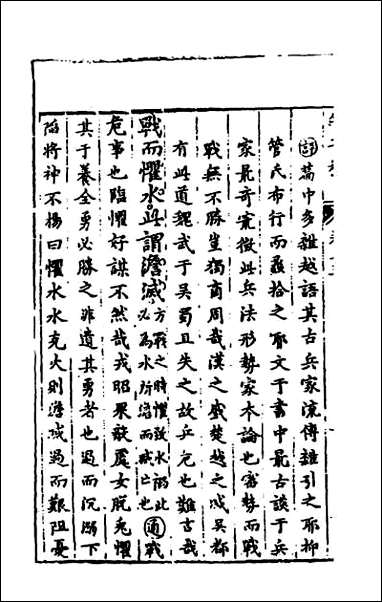 評篇中多雜越語其古兵家流傳雜引之耶抑
管氏布行而蠡拾之耶文于書中最古談于兵
家最奇最微此兵法形勢家本論也審勢而戰
戰無不勝豈獨商周哉漢之威楚越之滅吳都
有此道魏武于吳蜀且失之故兵危也難古哉
戰而懼水此謂澹滅方戰之時懼致水溺此必為水所澹而滅亡也通戰
危事也臨懼好謀不然哉我昭果敵處女脫兔懼
其于養全勇必勝之非遺其勇者也過而沉溺下
陷將神不揚曰懼水水克火則澹滅過而艱阻憂